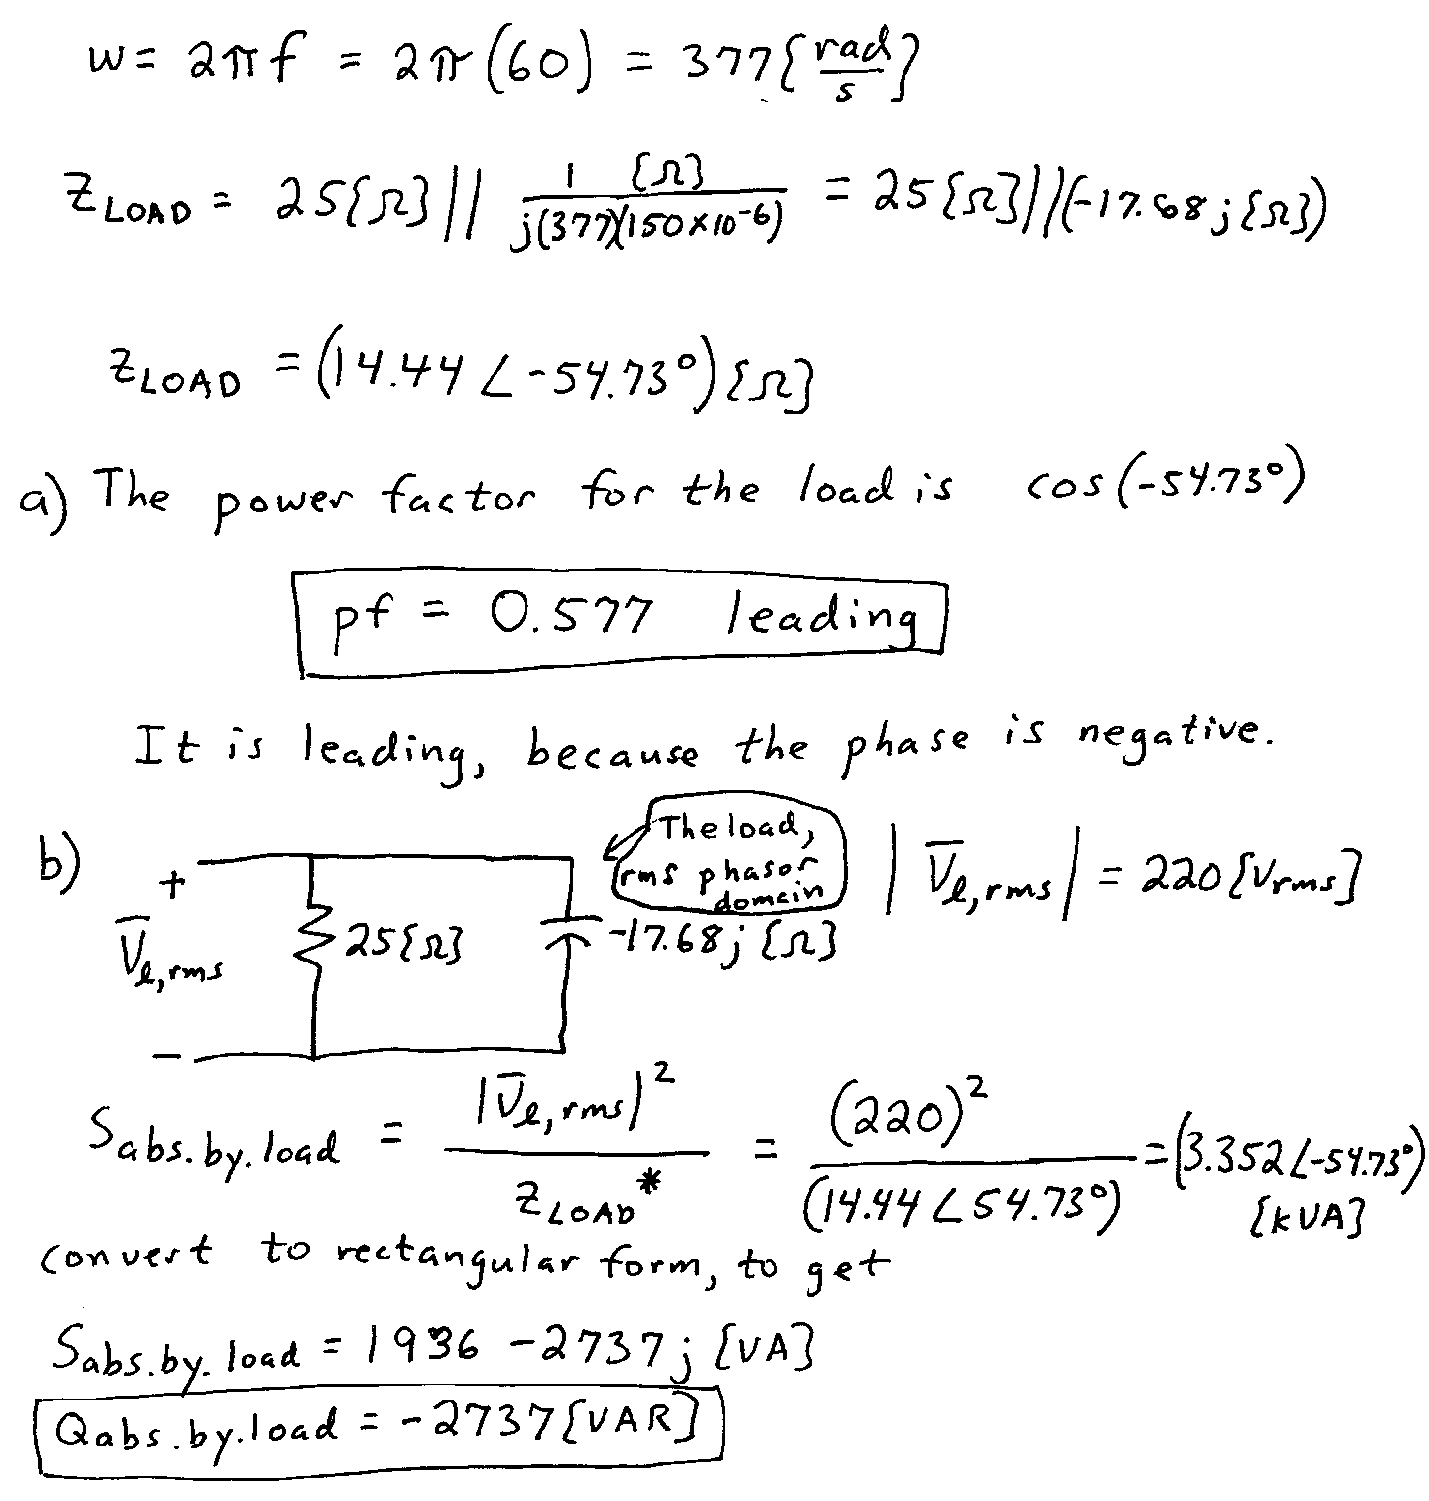 w = 2πf = 2π(60) = 377{rad/s}
Z LOAD = 25{Ω} || 1 {Ω} / j(377)(150×10^-6) = 25{Ω}||(-17.68j{Ω})
Z LOAD = (14.44 ∠-54.73°){Ω}
a) The power factor for the load is cos(-54.73°)
pf = 0.577 leading
It is leading, because the phase is negative.
b)
The load,
rms phasor
domain
|V̄ℓ,rms| = 220[Vrms]
+
V̄ℓ,rms
-
25{Ω}
-17.68j{Ω}
Sabs.by.load = |V̄ℓ,rms|² / Z LOAD* = (220)² / (14.44∠54.73°) = (3.352∠-54.73°)
[kVA]
convert to rectangular form, to get
Sabs.by.load = 1936 -2737j [VA]
Qabs.by.load = -2737[VAR]